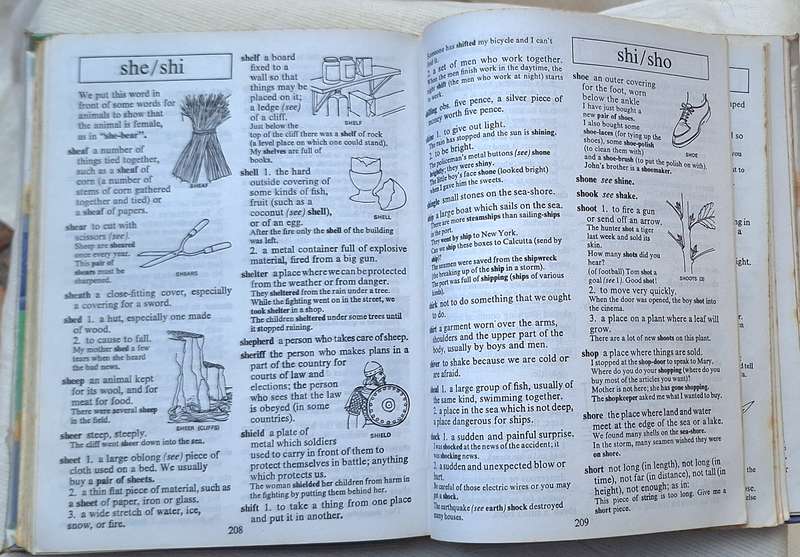 she/shi
We put this word in
front of some words for
animals to show that
the animal is female,
as in "she-bear".
sheaf a number of
things tied together,
such as a sheaf of
corn (a number of
stems of corn gathered
together and tied) or
a sheaf of papers.
SHEAF
shear to cut with
scissors (see).
Sheep are sheared
once every year.
This pair of
shears must be
sharpened.
SHEARS
sheath a close-fitting cover, especially
a covering for a sword.
shed 1. a hut, especially one made
of wood.
2. to cause to fall.
My mother shed a few
tears when she heard
the bad news.
sheep an animal kept
for its wool, and for
meat for food.
There were several sheep
in the field.
SHEER (CLIFFS)
sheer steep, steeply.
The cliff went sheer down into the sea.
sheet 1. a large oblong (see) piece of
cloth used on a bed. We usually
buy a pair of sheets.
2. a thin flat piece of material, such as
a sheet of paper, iron or glass.
3. a wide stretch of water, ice,
snow, or fire.
shelf a board
fixed to a
wall so that
things may be
placed on it;
a ledge (see)
of a cliff.
SHELF
Just below the
top of the cliff there was a shelf of rock
(a level place on which one could stand).
My shelves are full of
books.
shell 1. the hard
outside covering of
some kinds of fish,
fruit (such as a
coconut (see) shell),
or of an egg.
SHELL
After the fire only the shell of the building
was left.
2. a metal container full of explosive
material, fired from a big gun.
shelter a place where we can be protected
from the weather or from danger.
They sheltered from the rain under a tree.
While the fighting went on in the street, we
took shelter in a shop.
The children sheltered under some trees until
it stopped raining.
shepherd a person who takes care of sheep.
sheriff the person who makes plans in a
part of the country for
courts of law and
elections; the person
who sees that the law
is obeyed (in some
countries).
shield a plate of
metal which soldiers
SHIELD
used to carry in front of them to
protect themselves in battle; anything
which protects us.
The woman shielded her children from harm in
the fighting by putting them behind her.
shift 1. to take a thing from one place
and put it in another.
208
Someone has shifted my bicycle and I can't
find it.
2. a set of men who work together.
When the men finish work in the daytime, the
night shift (the men who work at night) starts
to work.
obs. five pence, a silver piece of
money worth five pence.
1. to give out light.
The rain has stopped and the sun is shining.
2. to be bright.
The policeman's metal buttons (see) shone
brightly; they were shiny.
The little boy's face shone (looked bright)
when I gave him the sweets.
small stones on the sea-shore.
a large boat which sails on the sea.
There are more steamships than sailing-ships
in the port.
They went by ship to New York.
Can we ship these boxes to Calcutta (send by
ship)?
The seamen were saved from the shipwreck
(the breaking up of the ship in a storm).
The port was full of shipping (ships of various
kinds).
not to do something that we ought
to do.
a garment worn over the arms,
shoulders and the upper part of the
body, usually by boys and men.
to shake because we are cold or
are afraid.
1. a large group of fish, usually of
the same kind, swimming together.
2. a place in the sea which is not deep,
a place dangerous for ships.
1. a sudden and painful surprise.
I was shocked at the news of the accident; it
was shocking news.
2. a sudden and unexpected blow or
hurt.
Be careful of those electric wires or you may
get a shock.
The earthquake (see earth) shock destroyed
many houses.
shi/sho
shoe an outer covering
for the foot, worn
below the ankle
I have just bought a
new pair of shoes.
I also bought some
shoe-laces (for tying up the
shoes), some shoe-polish
(to clean them with)
SHOE
and a shoe-brush (to put the polish on with).
John's brother is a shoemaker.
shone see shine.
shook see shake.
shoot 1. to fire a gun
or send off an arrow.
The hunter shot a tiger
last week and sold its
skin.
How many shots did you
hear?
(of football) Tom shot a
goal (see 1). Good shot!
SHOOTS (3)
2. to move very quickly.
When the door was opened, the boy shot into
the cinema.
3. a place on a plant where a leaf will
grow.
There are a lot of new shoots on this plant.
shop a place where things are sold.
I stopped at the shop-door to speak to Mary.
Where do you do your shopping (where do you
buy most of the articles you want)?
Mother is not here; she has gone shopping.
The shopkeeper asked me what I wanted to buy.
shore the place where land and water
meet at the edge of the sea or a lake.
We found many shells on the sea-shore.
In the storm, many seamen wished they were
on shore.
short not long (in length), not long (in
time), not far (in distance), not tall (in
height), not enough; as in:
This piece of string is too long. Give me a
short piece.
209